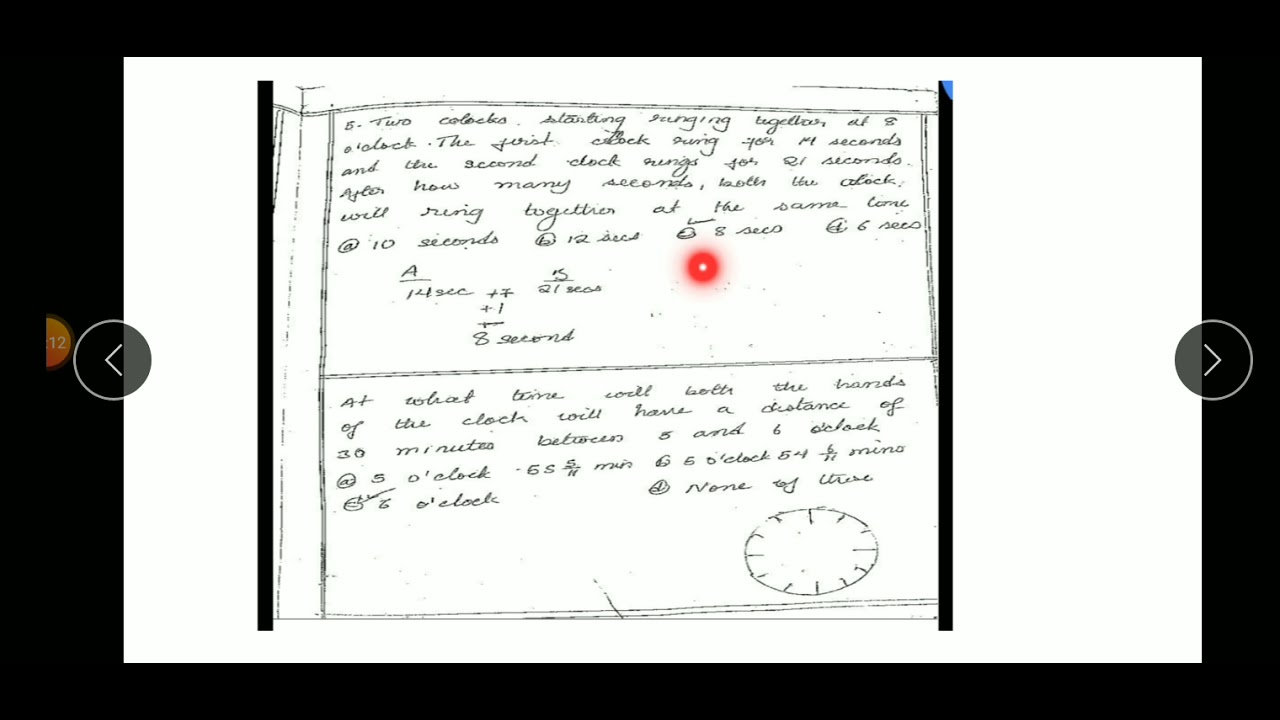 5. Two colocks. starting ringing together at 8
o'clock. The first clock ring for 14 seconds
and the second clock rings for 21 seconds.
After how many seconds, both the clock.
will ring together at the same time
ⓐ 10 seconds ⓑ 12 secs ⓒ 8 secs ⓓ 6 secs
A B
14sec +7 21 secs
+1
8 second
At what time will both the hands
of the clock will have a distance of
30 minutes between 5 and 6 o'clock
ⓐ 5 o'clock 55 5/11 min ⓑ 5 o'clock 54 6/11 mins
ⓒ 6 o'clock ⓓ None of these
:12